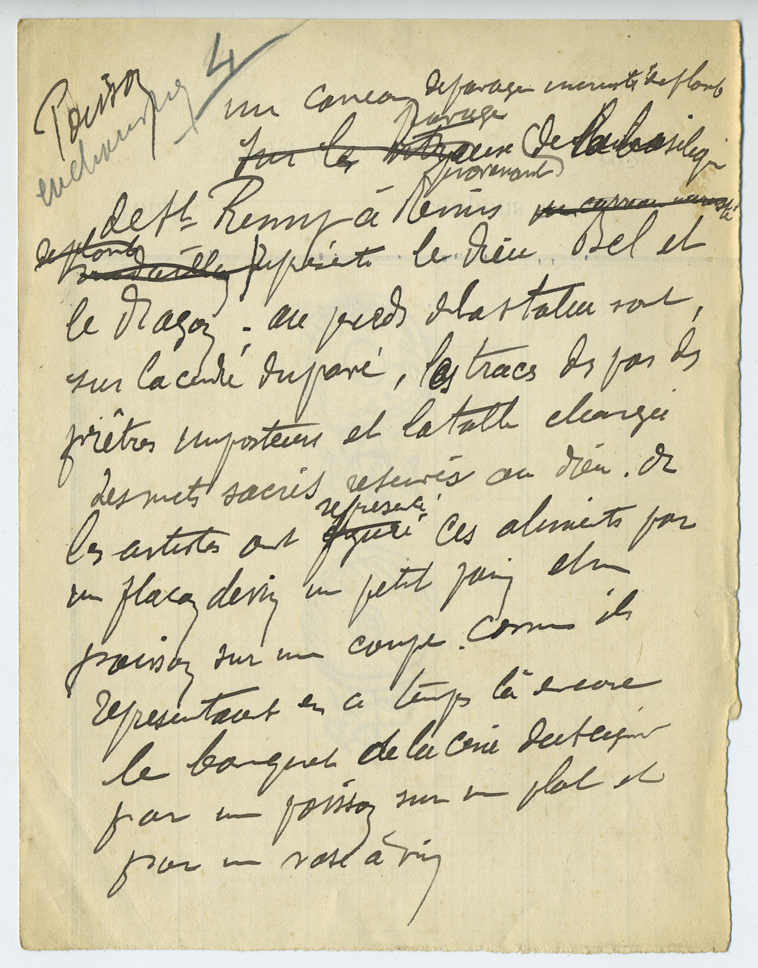 Poisson
eucharistique
4
un carreau de pavage incrusté de plomb
pavage
sur les de la basilique
(provenant)
de St Remy à Reims un carreau incrusté
de plomb
représente le dieu Bel et
le Dragon ; au pieds de la statue sont,
sur la cendré du pavé, les traces des pas des
prêtres imposteurs et la table chargée
des mets sacrés réservés au dieu. 
représenté
les artistes ont figuré ces aliments par
un flacon de vin un petit pain et un
poisson sur une coupe. Comme ils
représentaient en ce temps là encore
le banquet de la cène du Seigneur
par un poisson sur un plat et
par un vase à vin